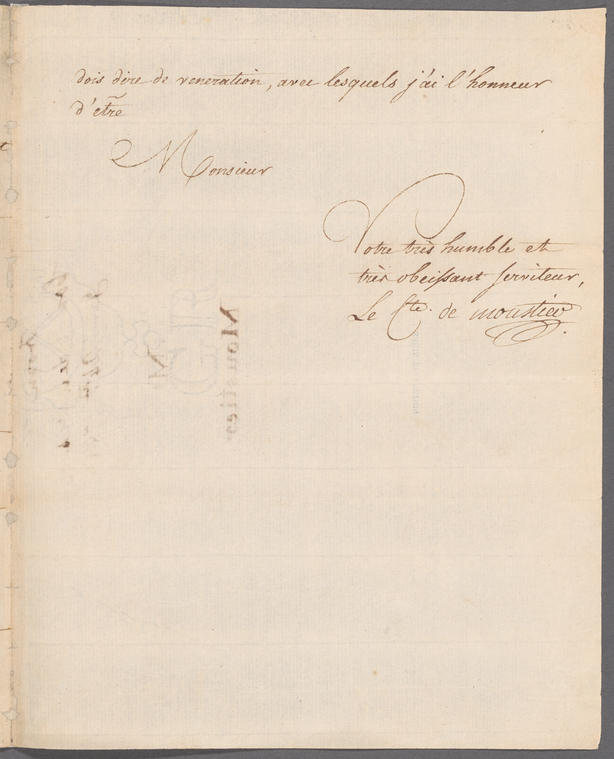 dois dire de veneration, avec lesquels j'ai l'honneur
d'etre
Monsieur
Votre très humble et
très obeissant serviteur,
Le Cte. de moustier.
Moustier